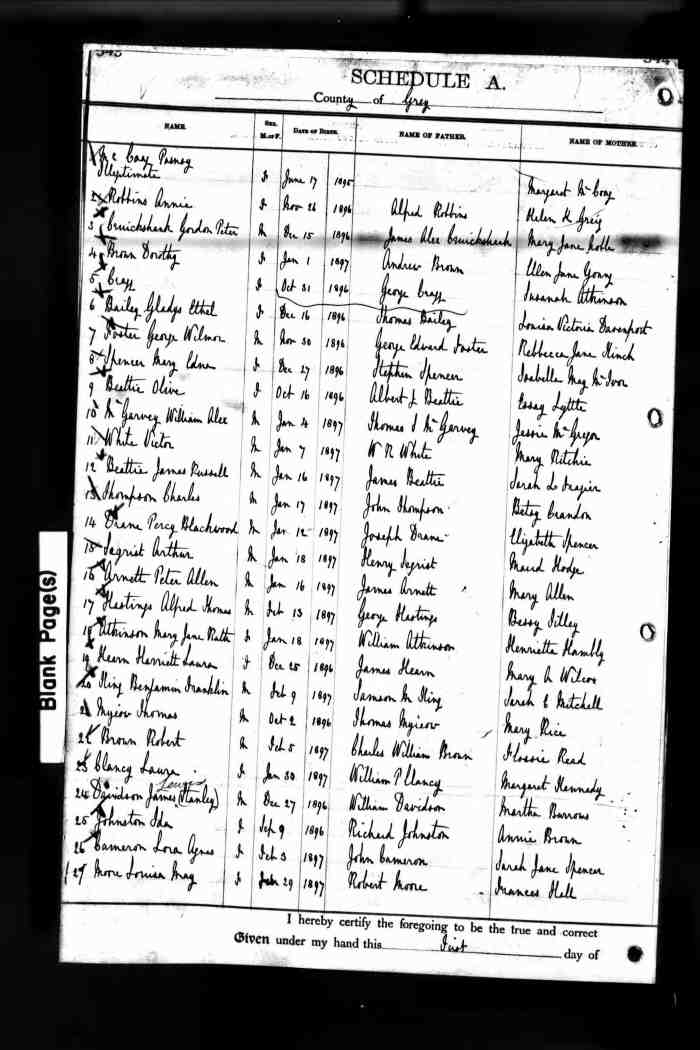 343 344
SCHEDULE A.
County of Grey
NAME. SEX. M. or F. DATE OF BIRTH. NAME OF FATHER. NAME OF MOTHER.
Mc Coy
Illegitimate F June 17 1895 Margaret McCoy
2 Robbins Annie F Nov 26 1896 Alfred Robbins Helen K Greig
3 Cruickshank Gordon Peter M Dec 15 1896 James Alec Cruickshank Mary Jane
4 Brown Dorothy F Jan 1 1897 Andrew Brown Ellen Jane
5 F Oct 31 1896 George Susanah Atkinson
6 Bailey Gladys Ethel F Dec 16 1896 Thomas Bailey Louisa Victoria Davenport
7 Foster George Wilmor M Nov 30 1896 George Edward Foster Rebbecca Jane Hinch
8 Spencer Mary Edna F Dec 27 1896 Stephen Spencer Isabella May McIvor
9 Beattie Olive F Oct 16 1896 Albert J Beattie Essay Lyttle
10 McGarvey William Alec M Jan 4 1897 Thomas S McGarvey Jessie McGregor
11 White Victor M Jan 7 1897 W R White Mary Ritchie
12 Beattie James Russell M Jan 16 1897 James Beattie Sarah L Frazier
13 Thompson Charles M Jan 17 1897 John Thompson Betsy Crandon
14 Drane Percy Blackwood M Jan 12 1897 Joseph Drane Elizabeth Spencer
15 Segrist Arthur M Jan 18 1897 Henry Segrist Maud Hodge
16 Arnett Peter Allen M Jan 16 1897 James Arnett Mary Allen
17 Hastings Alfred Thomas M Feb 13 1897 George Hastings Bessy Tilley
18 Atkinson Mary Jane Ruth F Jan 18 1897 William Atkinson Henrietta Hambly
19 Hearn Harriett Laura F Dec 25 1896 James Hearn Mary A Wilcox
20 King Benjamin Franklin M Feb 9 1897 Samson M King Sarah E Mitchell
21 Thomas M Oct 2 1896 Thomas Mary Rice
22 Brown Robert M Feb 5 1897 Charles William Brown Flossie Read
23 Clancy Laura F Jan 30 1897 William P Clancy Margaret Kennedy
24 Davidson James (Stanley) M Dec 27 1896 William Davidson Martha Burrows
25 Johnston Ida F Sep 9 1896 Richard Johnston Annie Brown
26 Cameron Lora Agnes F Feb 3 1897 John Cameron Sarah Jane Spencer
27 More Louisa May F Jan 29 1897 Robert Moore Frances Hall
I hereby certify the foregoing to be the true and correct
Given under my hand this First day of
Blank Page(s)